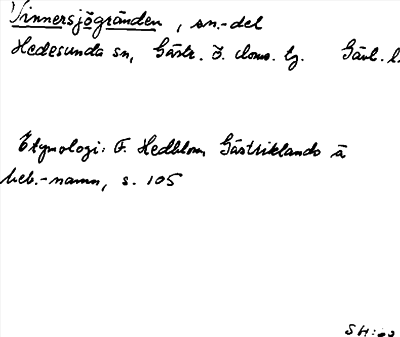 Vinnersjögränden, sn.-del
Hedesunda sn, Gästr. Ö. doms. tg. Gävl. l.
Etymologi: F. Hedblom, Gästriklands ä
beb.-namn, s. 105
SH: